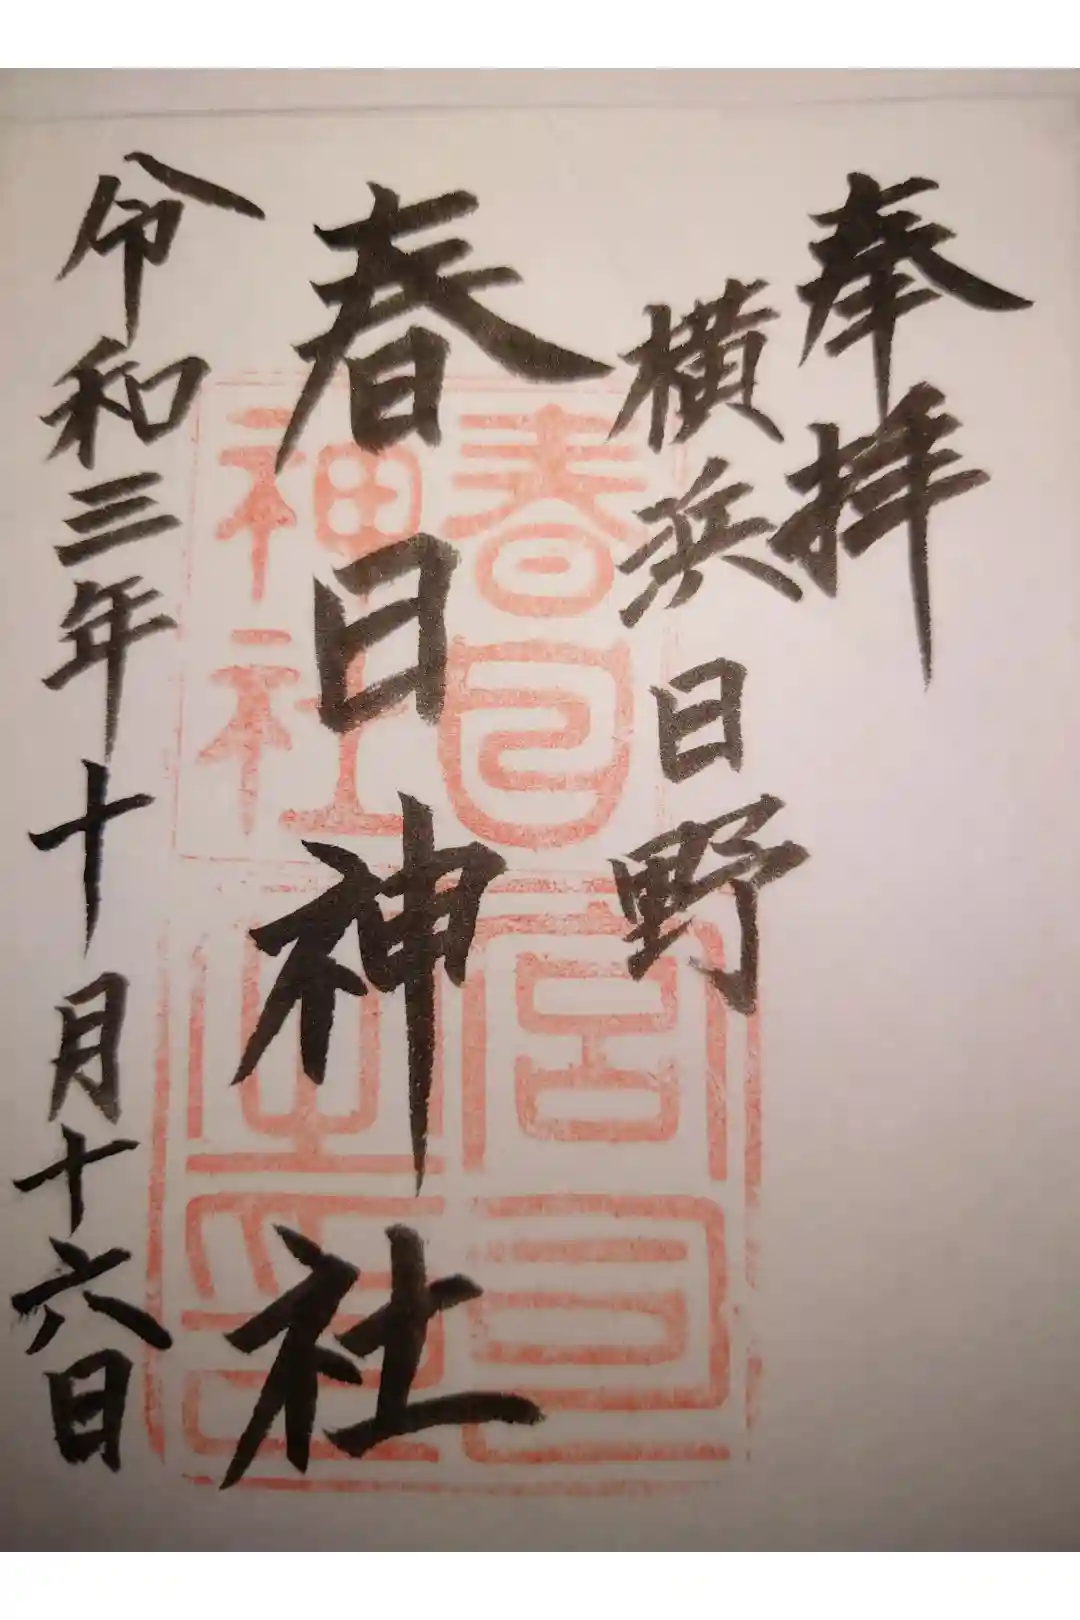 奉拝
横浜日野
春日神社
令和三年十月十六日
春日神社
宮司之印